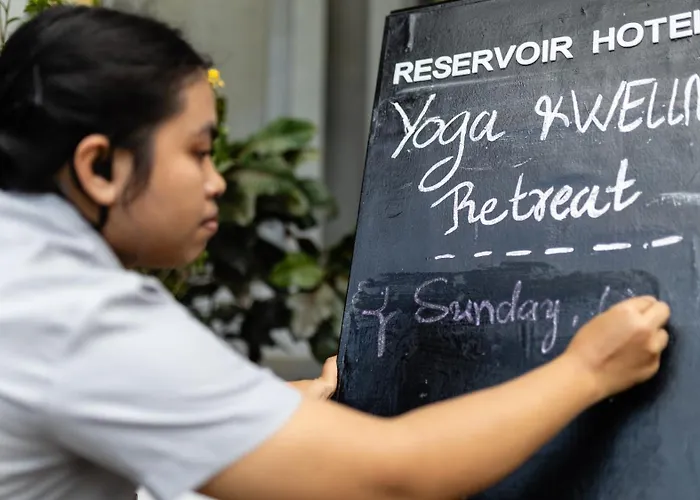 RESERVOIR HOTEL
Yoga & WELLN
Retreat
Sunday,